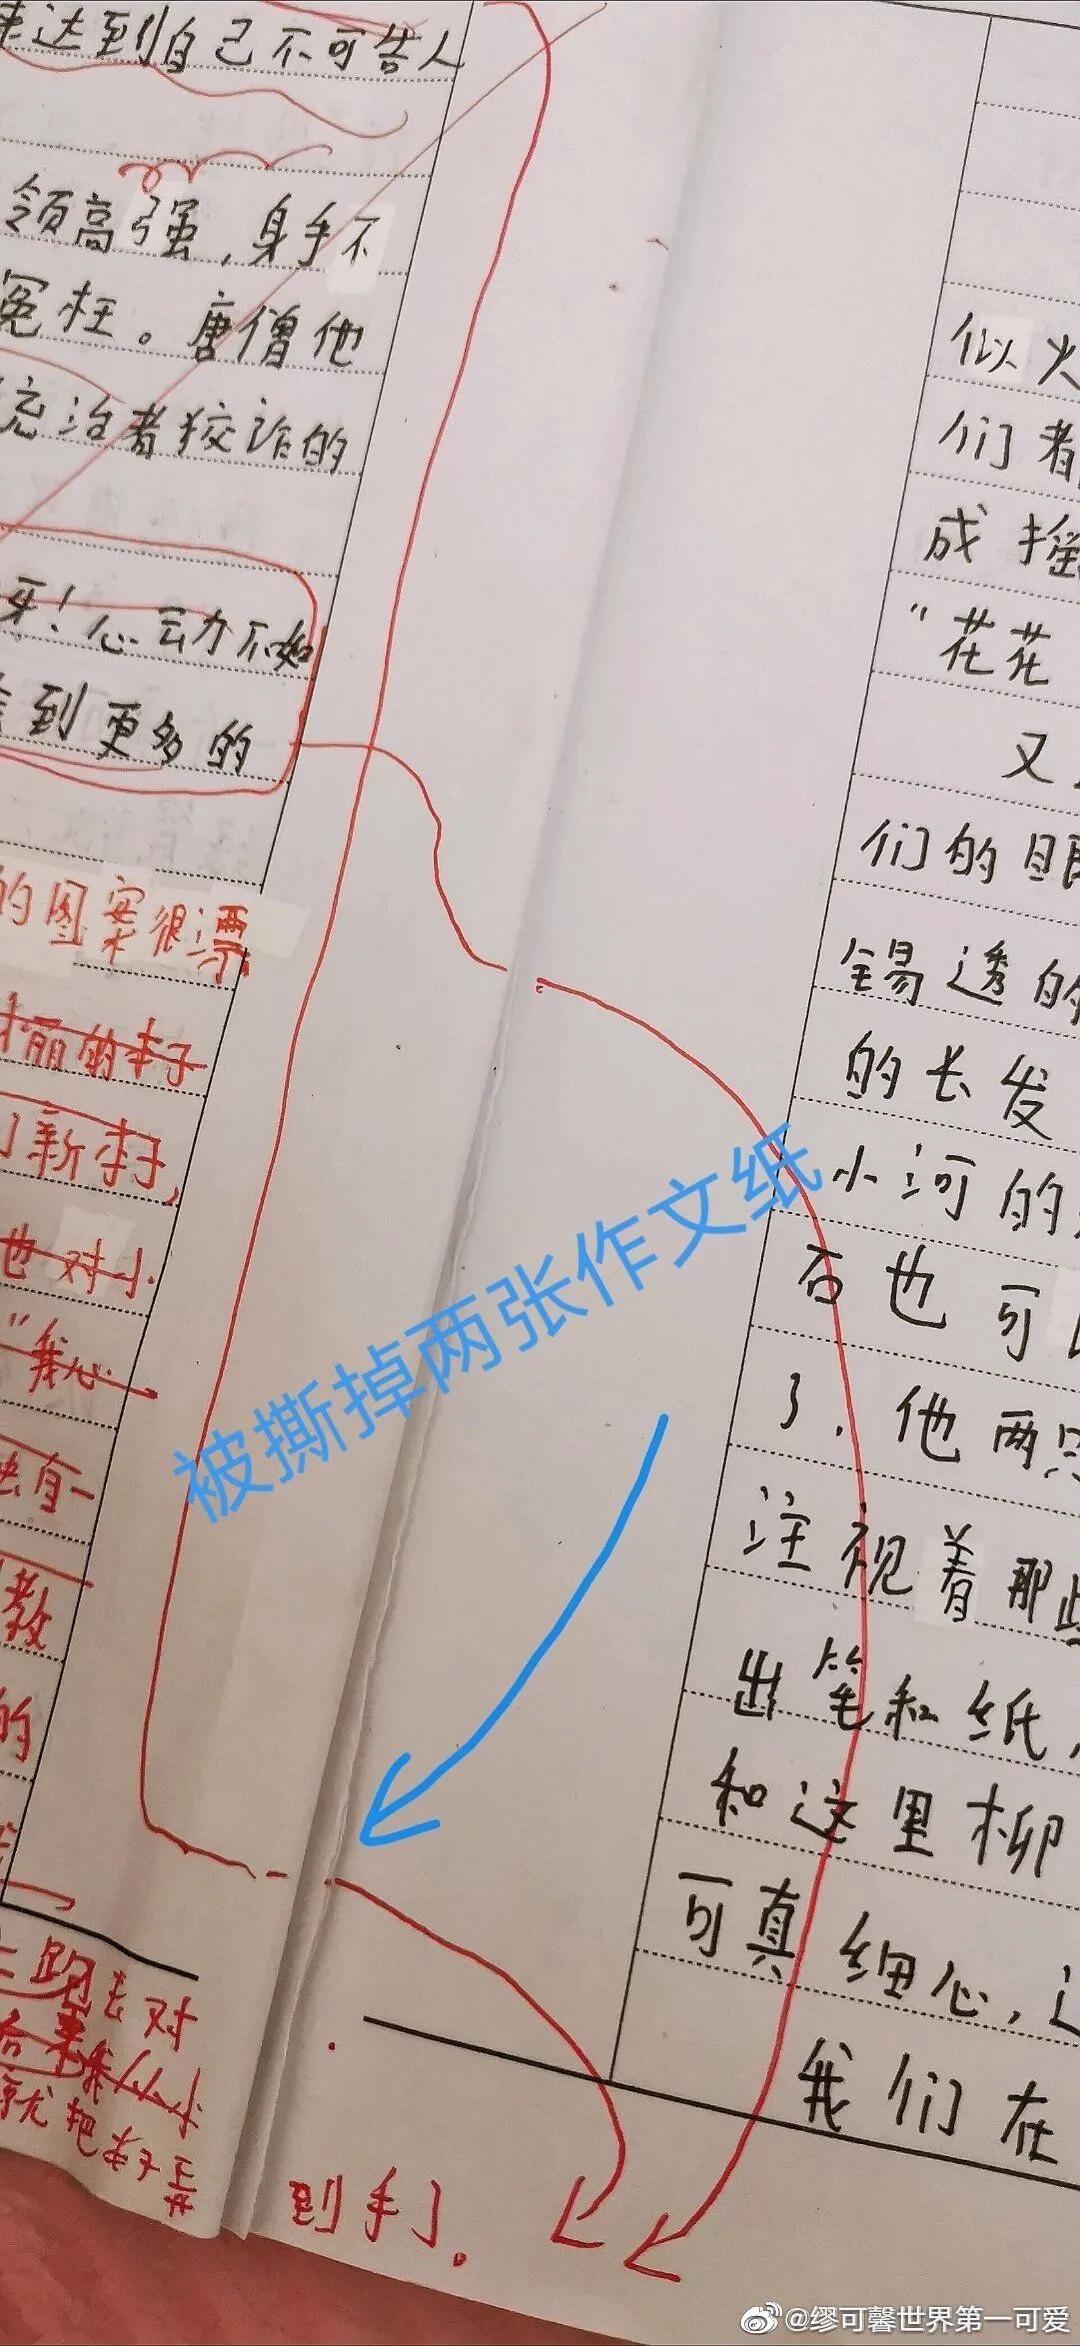 达到自己不可告人
领高强,身手不
冤枉。唐僧他
统治者狡诈的
呀!心动不如
到更多的
的图案很漂
丽的李子
了新李子,
也对小
"我心
有一
教
的
路去对
就把
到手了。
被撕掉两张作文纸
似火
们着
成摇
"花花
又
们的眼
锡透的
的长发
小河的
否也可
了,他两只
注视着那些
出笔和纸,
和这里柳
可真细心,
我们在
@缪可馨世界第一可爱